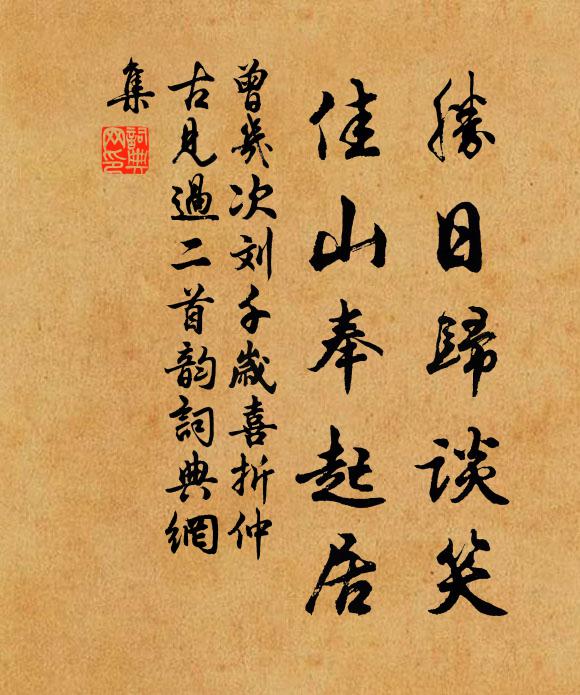 勝日歸談笑
佳山奉起居
曾幾次刘千歲喜折仲
古見過二首韵詞典網
集
詞典网印